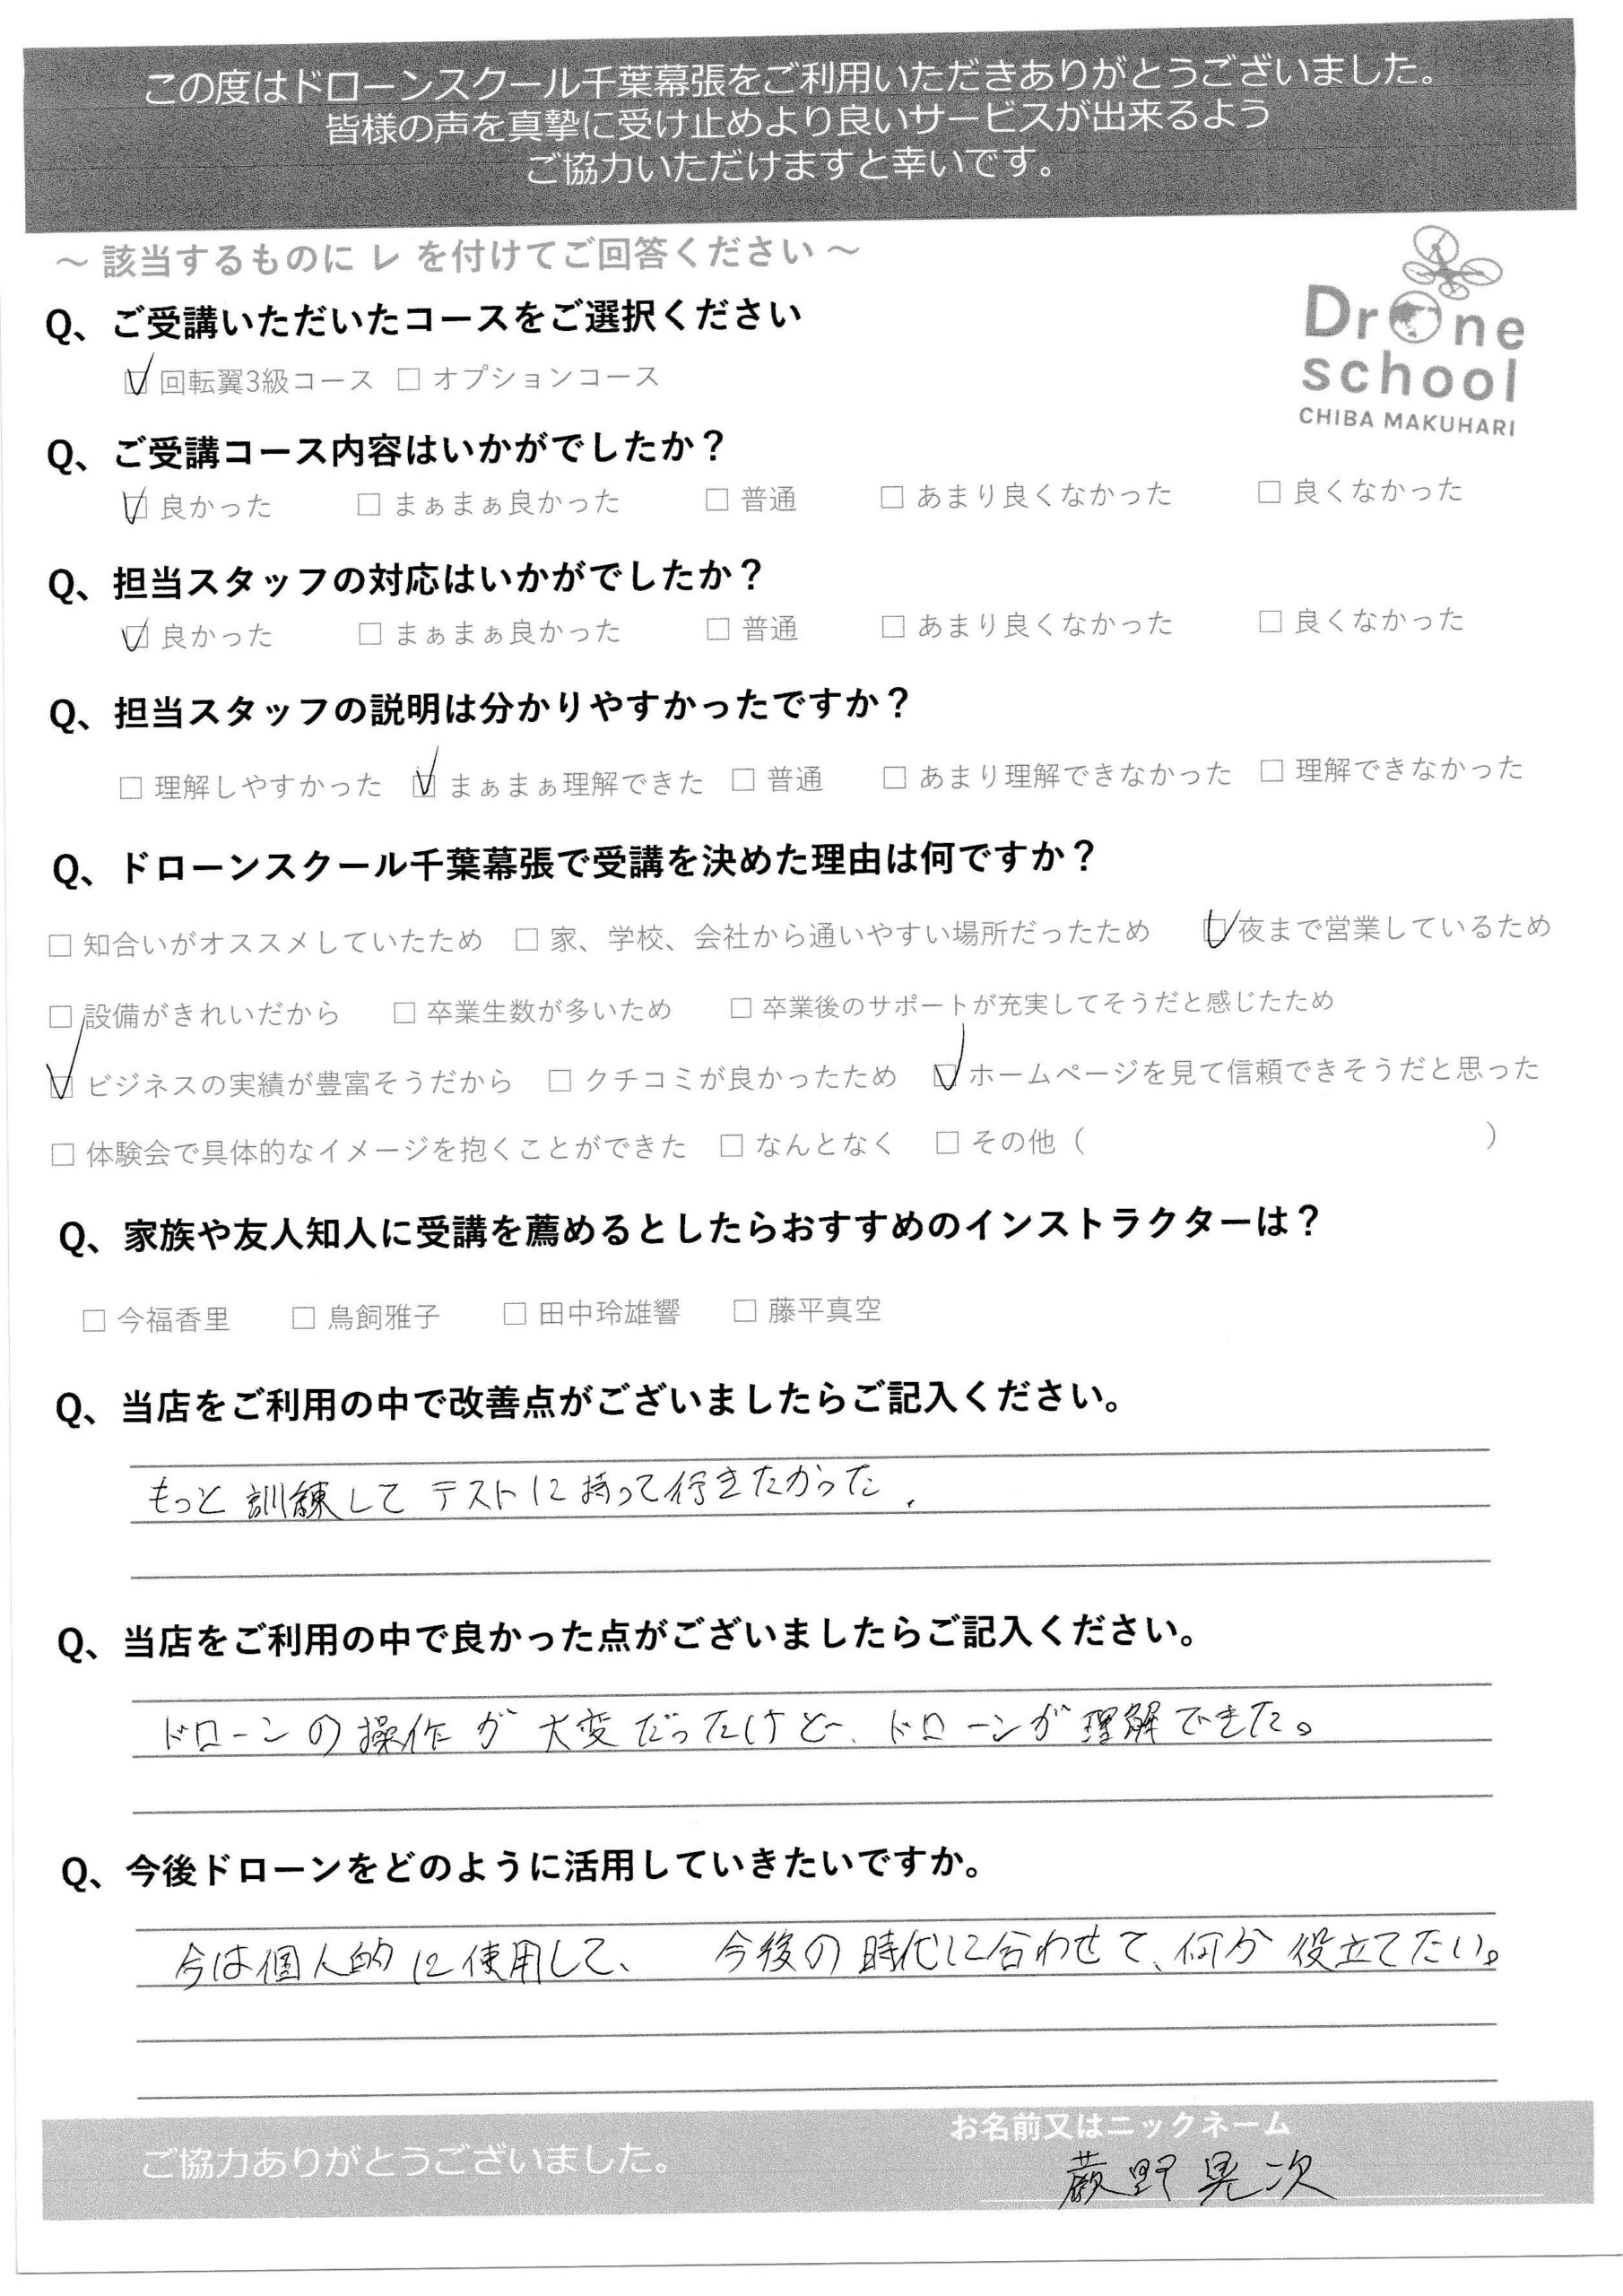 この度はドローンスクール千葉幕張をご利用いただきありがとうございました。
皆様の声を真摯に受け止めより良いサービスが出来るよう
ご協力いただけますと幸いです。
～ 該当するものに レ を付けてご回答ください ～
Drone
school
CHIBA MAKUHARI
Q、ご受講いただいたコースをご選択ください
☑ 回転翼3級コース □ オプションコース
Q、ご受講コース内容はいかがでしたか？
☑ 良かった □ まぁまぁ良かった □ 普通 □ あまり良くなかった □ 良くなかった
Q、担当スタッフの対応はいかがでしたか？
☑ 良かった □ まぁまぁ良かった □ 普通 □ あまり良くなかった □ 良くなかった
Q、担当スタッフの説明は分かりやすかったですか？
□ 理解しやすかった ☑ まぁまぁ理解できた □ 普通 □ あまり理解できなかった □ 理解できなかった
Q、ドローンスクール千葉幕張で受講を決めた理由は何ですか？
□ 知合いがオススメしていたため □ 家、学校、会社から通いやすい場所だったため ☑ 夜まで営業しているため
□ 設備がきれいだから □ 卒業生数が多いため □ 卒業後のサポートが充実してそうだと感じたため
☑ ビジネスの実績が豊富そうだから □ クチコミが良かったため ☑ ホームページを見て信頼できそうだと思った
□ 体験会で具体的なイメージを抱くことができた □ なんとなく □ その他（ ）
Q、家族や友人知人に受講を薦めるとしたらおすすめのインストラクターは？
□ 今福香里 □ 鳥飼雅子 □ 田中玲雄響 □ 藤平真空
Q、当店をご利用の中で改善点がございましたらご記入ください。
もっと訓練してテストに持って行きたかった.
Q、当店をご利用の中で良かった点がございましたらご記入ください。
ドローンの操作が大変だったけど、ドローンが理解できた。
Q、今後ドローンをどのように活用していきたいですか。
今は個人的に使用して、 今後の時代に合わせて、何か役立てたい。
ご協力ありがとうございました。
お名前又はニックネーム
野晃次